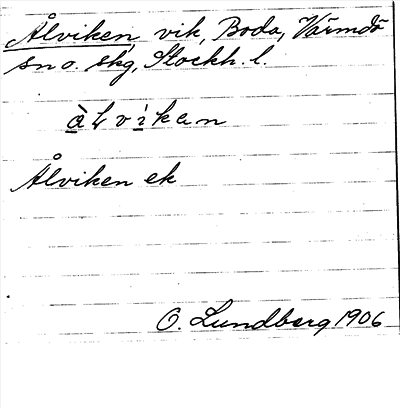 Ålviken, vik, Boda, Värmdö
sn o. skg, Stockh. l.
àlvìkan
Ålviken ek
O. Lundberg 1906